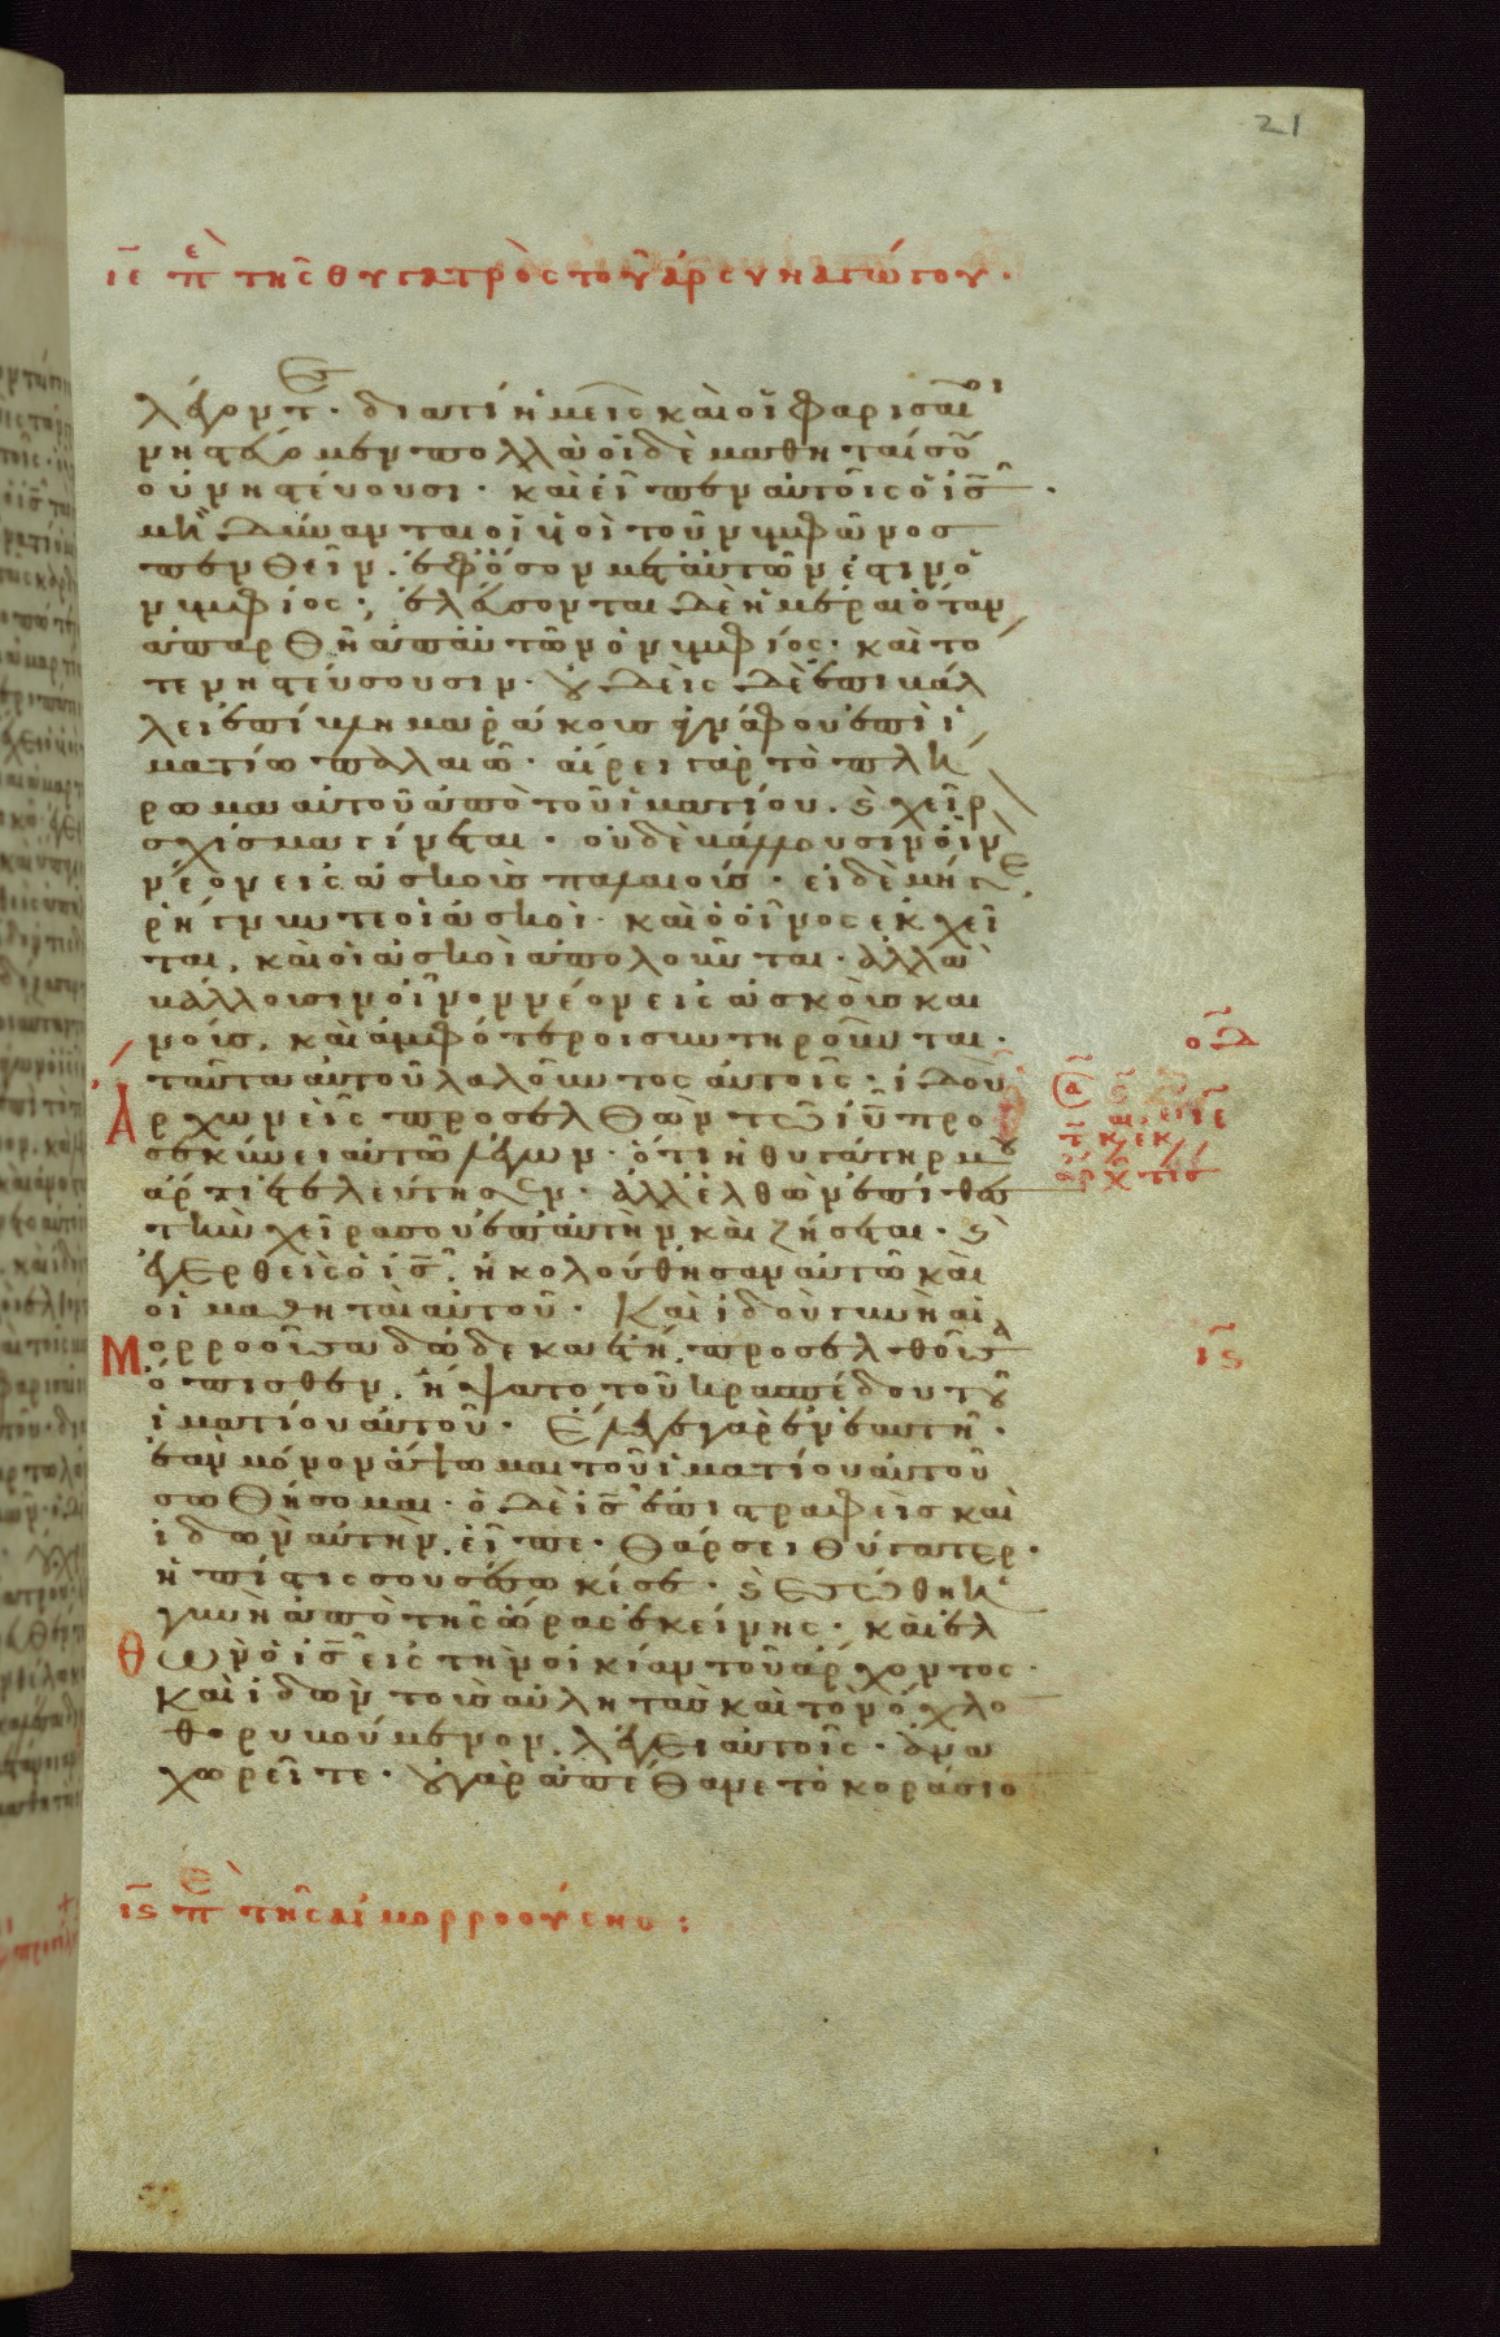 21
ιε περὶ τῆς θυγατρὸς τοῦ ἀρχισυναγώγου·
λέγοντες· διατί ἡμεῖς καὶ οἱ φαρισαῖοι
νηστεύομεν πολλὰ οἱ δὲ μαθηταί σου
οὐ νηστεύουσι· καὶ εἶπεν αὐτοῖς ὁ ἰς·
μὴ δύνανται οἱ υἱοὶ τοῦ νυμφῶνος
πενθεῖν. ἐφ' ὅσον μετ' αὐτῶν ἐστιν ὁ
νυμφίος; ἐλεύσονται δὲ ἡμέραι ὅταν
ἀπαρθῆ ἀπ' αὐτῶν ὁ νυμφίος· καὶ τό
τε νηστεύσουσιν· οὐδεὶς δὲ ἐπιβάλ
λει ἐπίβλημα ῥάκους ἀγνάφου ἐπὶ ἱ
ματίω παλαιῶ· αἴρει γὰρ τὸ πλή
ρωμα αὐτοῦ ἀπὸ τοῦ ἱματίου. ϗ χεῖρον
σχίσμα γίνεται· οὐδὲ βάλλουσιν οἶνον
νέον εἰς ἀσκοὺς παλαιούς· εἰ δὲ μήγε
ῥήγνυνται οἱ ἀσκοὶ· καὶ ὁ οἶνος ἐκχεῖ
ται, καὶ οἱ ἀσκοὶ ἀπολοῦνται· ἀλλὰ
βάλλουσιν οἶνον νέον εἰς ἀσκοὺς και
νούς, καὶ ἀμφότεροι συντηροῦνται·
ταῦτα αὐτοῦ λαλοῦντος αὐτοῖς· ἰδοὺ
Ἄρχων εἷς προσελθὼν τῶ ιυ προ
σεκύνει αὐτῶ λέγων· ὅτι ἡ θυγάτηρ μου
ἄρτι ἐτελεύτησεν· ἀλλ' ἐλθὼν ἐπίθες
τὴν χεῖρα σου ἐπ' αὐτὴν καὶ ζήσεται· ϗ
ἐγερθεὶς ὁ ις, ἠκολούθησαν αὐτῶ καὶ
οἱ μαθηταὶ αὐτοῦ· Καὶ ἰδοὺ γυνὴ αἱ
Μορροοῦσα δώδεκα ἔτη, προσελθοῦσα
ὄπισθεν, ἥψατο τοῦ κρασπέδου τοῦ
ἱματίου αὐτοῦ· Ἔλεγε γὰρ ἐν ἑαυτῆ·
ἐὰν μόνον ἅψωμαι τοῦ ἱματίου αὐτοῦ
σωθήσομαι· ὁ δὲ ις ἐπιστραφεὶς καὶ
ἰδὼν αὐτὴν, εἶπε· Θάρσει θύγατερ·
ἡ πίστις σου σέσωκέ σε· ϗ ἐσώθη ἡ
γυνὴ ἀπὸ τῆς ὥρας ἐκείνης· καὶ ἐλ
Θὼν ὁ ις εἰς τὴν οἰκίαν τοῦ ἄρχοντος·
Καὶ ἰδὼν τοὺς αὐλητὰς καὶ τὸν ὄχλο
θορυβούμενον, λέγει αὐτοῖς· ἀνα
χωρεῖτε· οὐ γὰρ ἀπέθανε τὸ κοράσιο
οδ
ις
ις περὶ τῆς αἱμορροούσης: